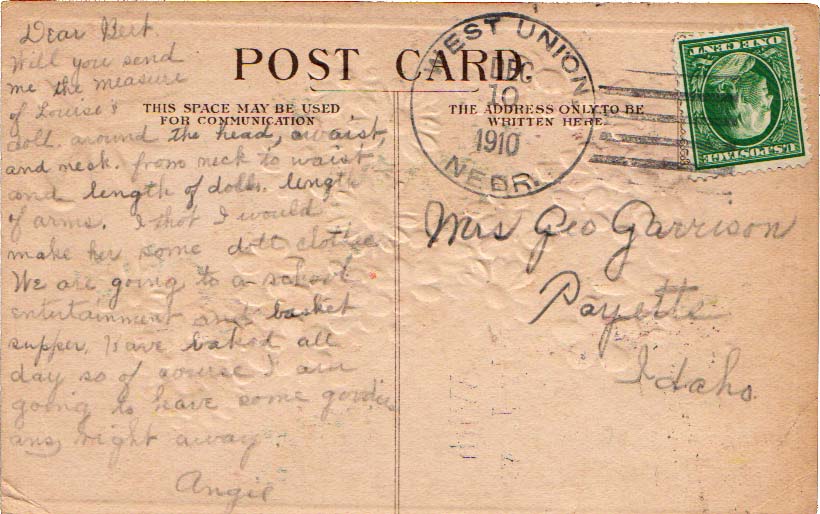 Dear Bert.
Will you send
me the measure
of Louise's
doll. around the head, waist,
and neck. from neck to waist
and length of dolls. length
of arms. I thot I would
make her some doll clothes
We are going to a school
entertainment and basket
supper. Have baked all
day so of course I am
going to have some goodies
ans, right away.
Angie
POST CARD.
THIS SPACE MAY BE USED
FOR COMMUNICATION
THE ADDRESS ONLY TO BE
WRITTEN HERE
WEST UNION
DEC
10
1910
NEBR.
U.S. POSTAGE
ONE CENT
Mrs Geo Garrison
Payette
Idaho.